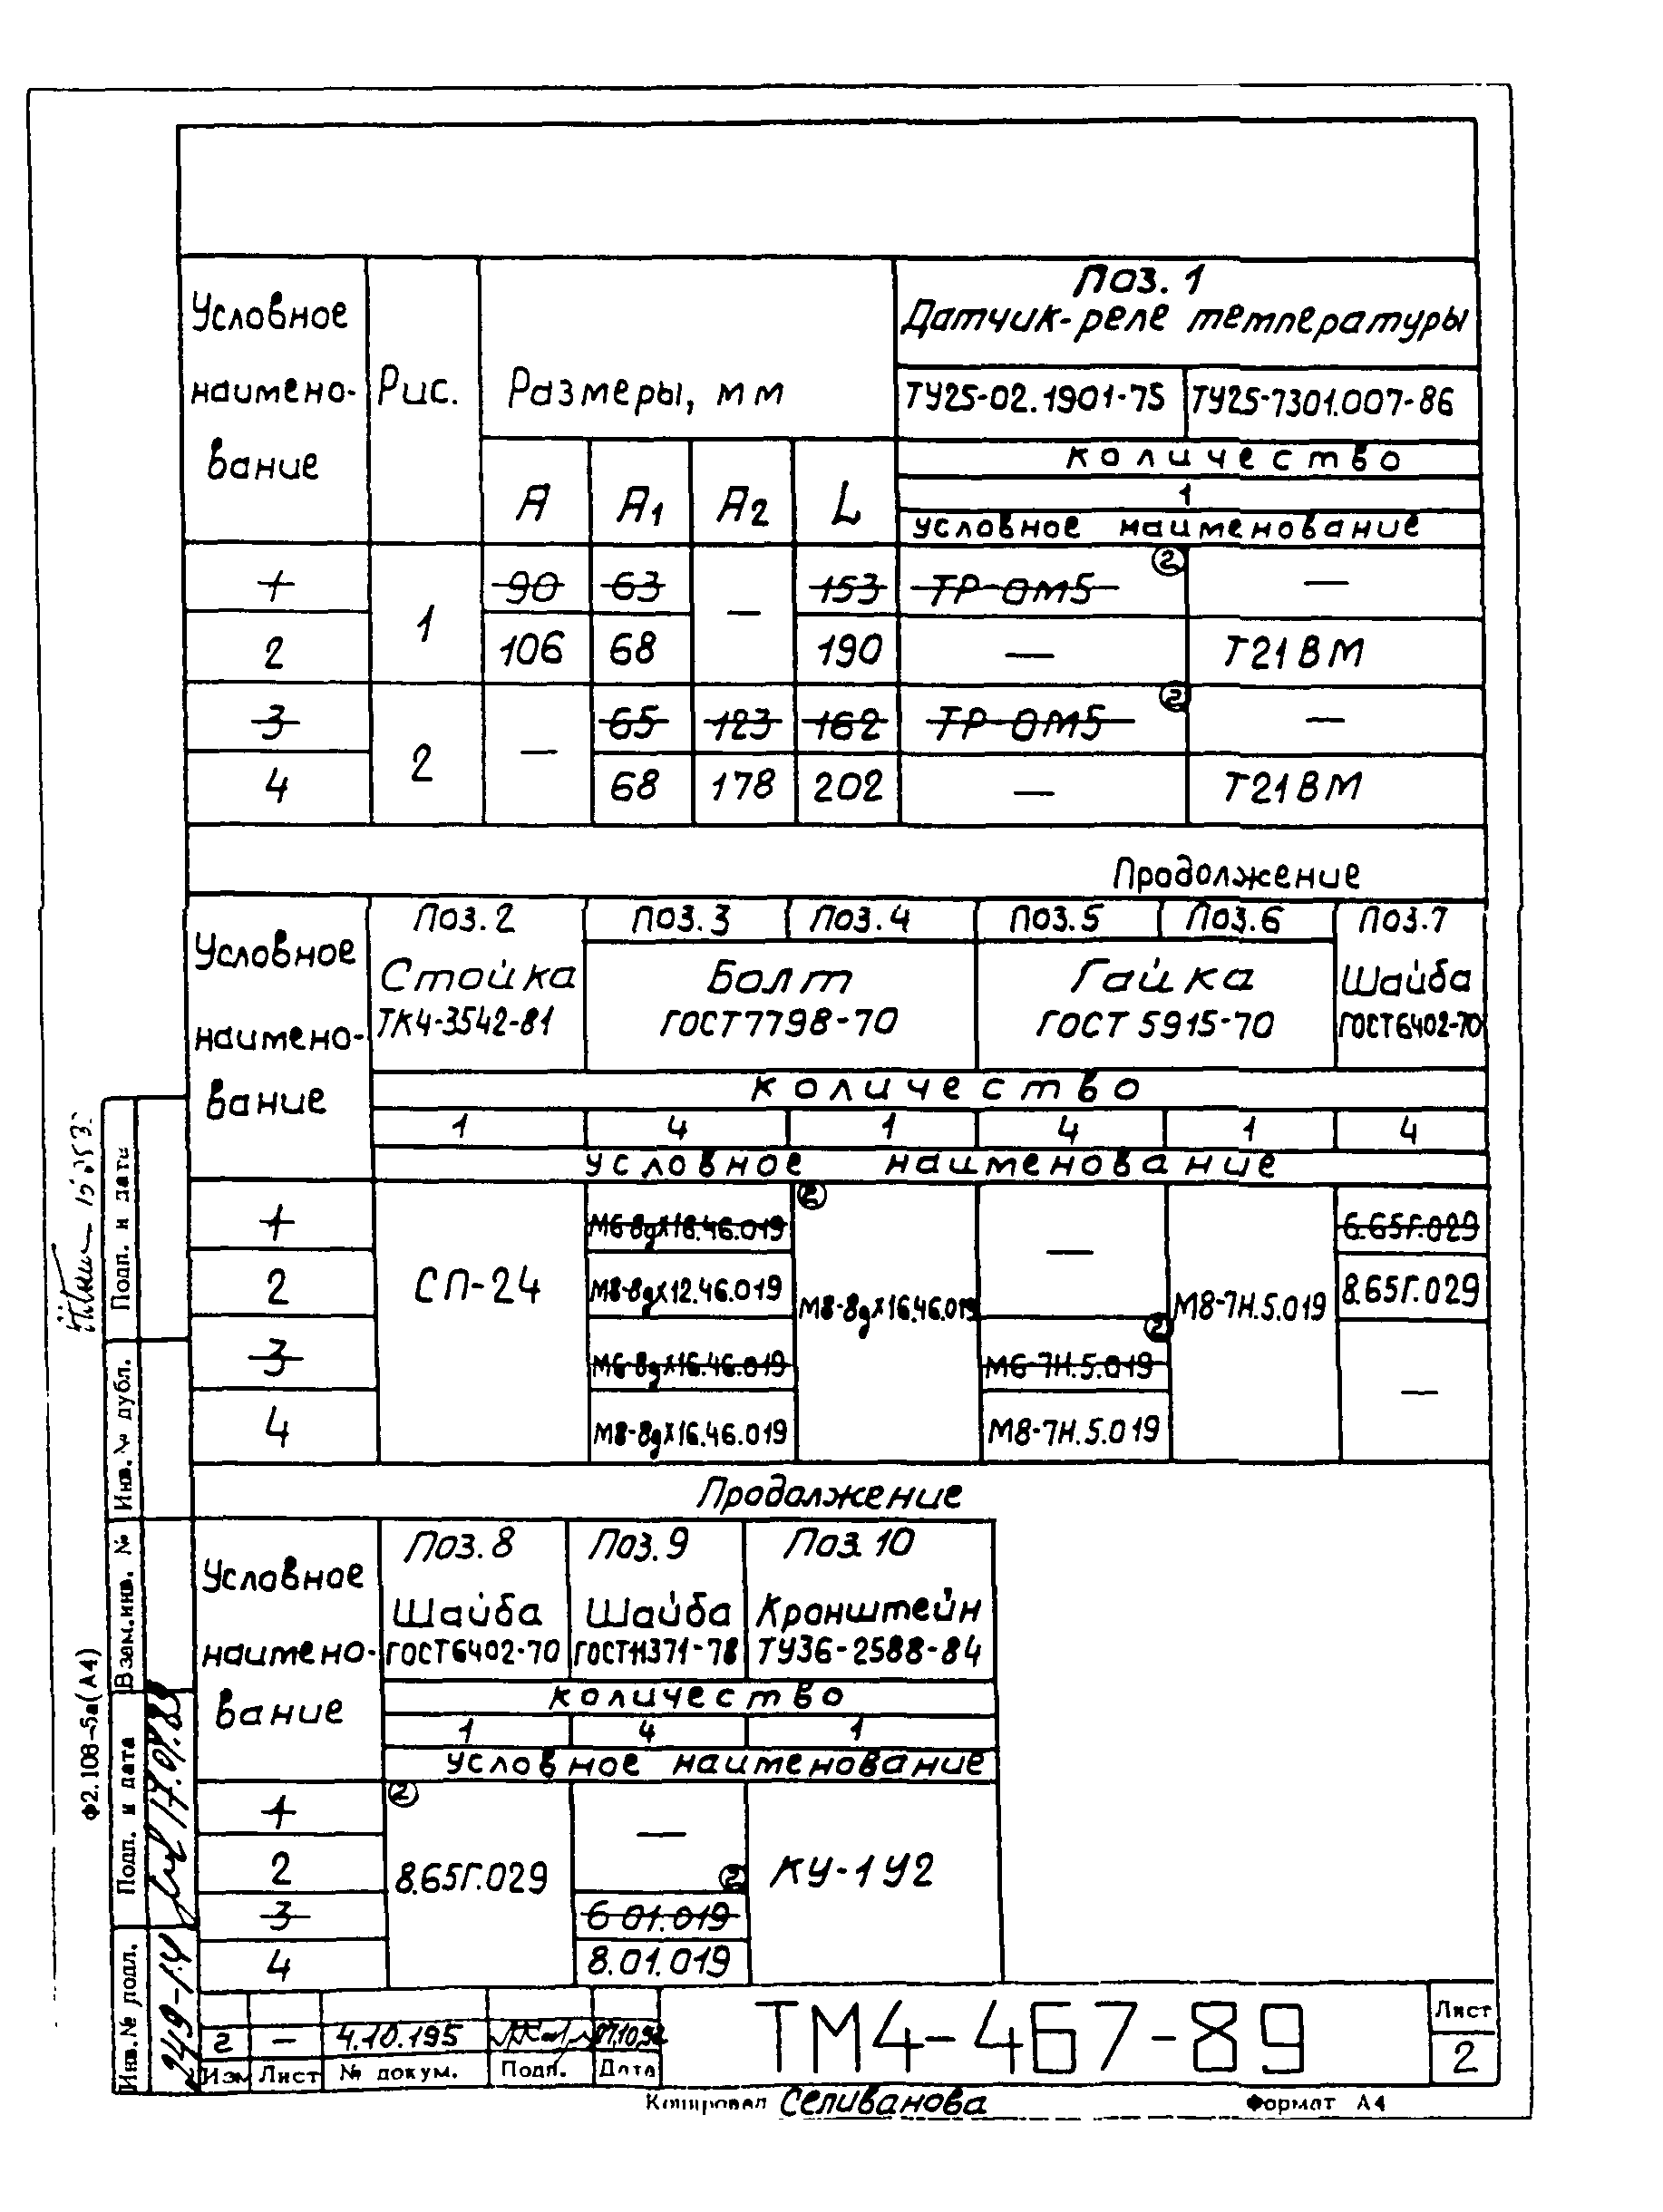 Условное наимено- вание
Рис.
Размеры, мм
Поз. 1
Датчик-реле температуры
ТУ25-02.1901-75 ТУ25-7301.007-86
количество
1
A A1 A2 L
условное наименование
1 1 90 63 — 153 ТР-ОМ5 —
2 106 68 190 — Т21ВМ
3 2 — 65 123 162 ТР-ОМ5 —
4 68 178 202 — Т21ВМ
Продолжение
Условное наимено- вание
Поз. 2 Поз. 3 Поз. 4 Поз. 5 Поз. 6 Поз. 7
Стойка Болт Гайка Шайба
ТК4-3542-81 ГОСТ 7798-70 ГОСТ 5915-70 ГОСТ 6402-70
количество
1 4 1 4 1 4
условное наименование
1 М6-8gх16.46.019 — 6.65Г.029
2 СП-24 М8-8gх12.46.019 М8-8gх16.46.019 М8-7Н.5.019 8.65Г.029
3 М6-8gх16.46.019 М6-7Н.5.019 —
4 М8-8gх16.46.019 М8-7Н.5.019
Продолжение
Условное наимено- вание
Поз. 8 Поз. 9 Поз. 10
Шайба Шайба Кронштейн
ГОСТ 6402-70 ГОСТ 11371-78 ТУ36-2588-84
количество
1 4 1
условное наименование
1 —
2 8.65Г.029 КУ-1У2
3 6 01.019
4 8.01.019
2 — 4.10.195
Изм Лист № докум. Подп. Дата
ТМ4-467-89
Лист
2
Копировал Селиванова Формат А4
Подп. и дата
Инв. № дубл.
Взам.инв. №
Подп. и дата
Инв.№ подл.
Ф2.108-5а(А4)